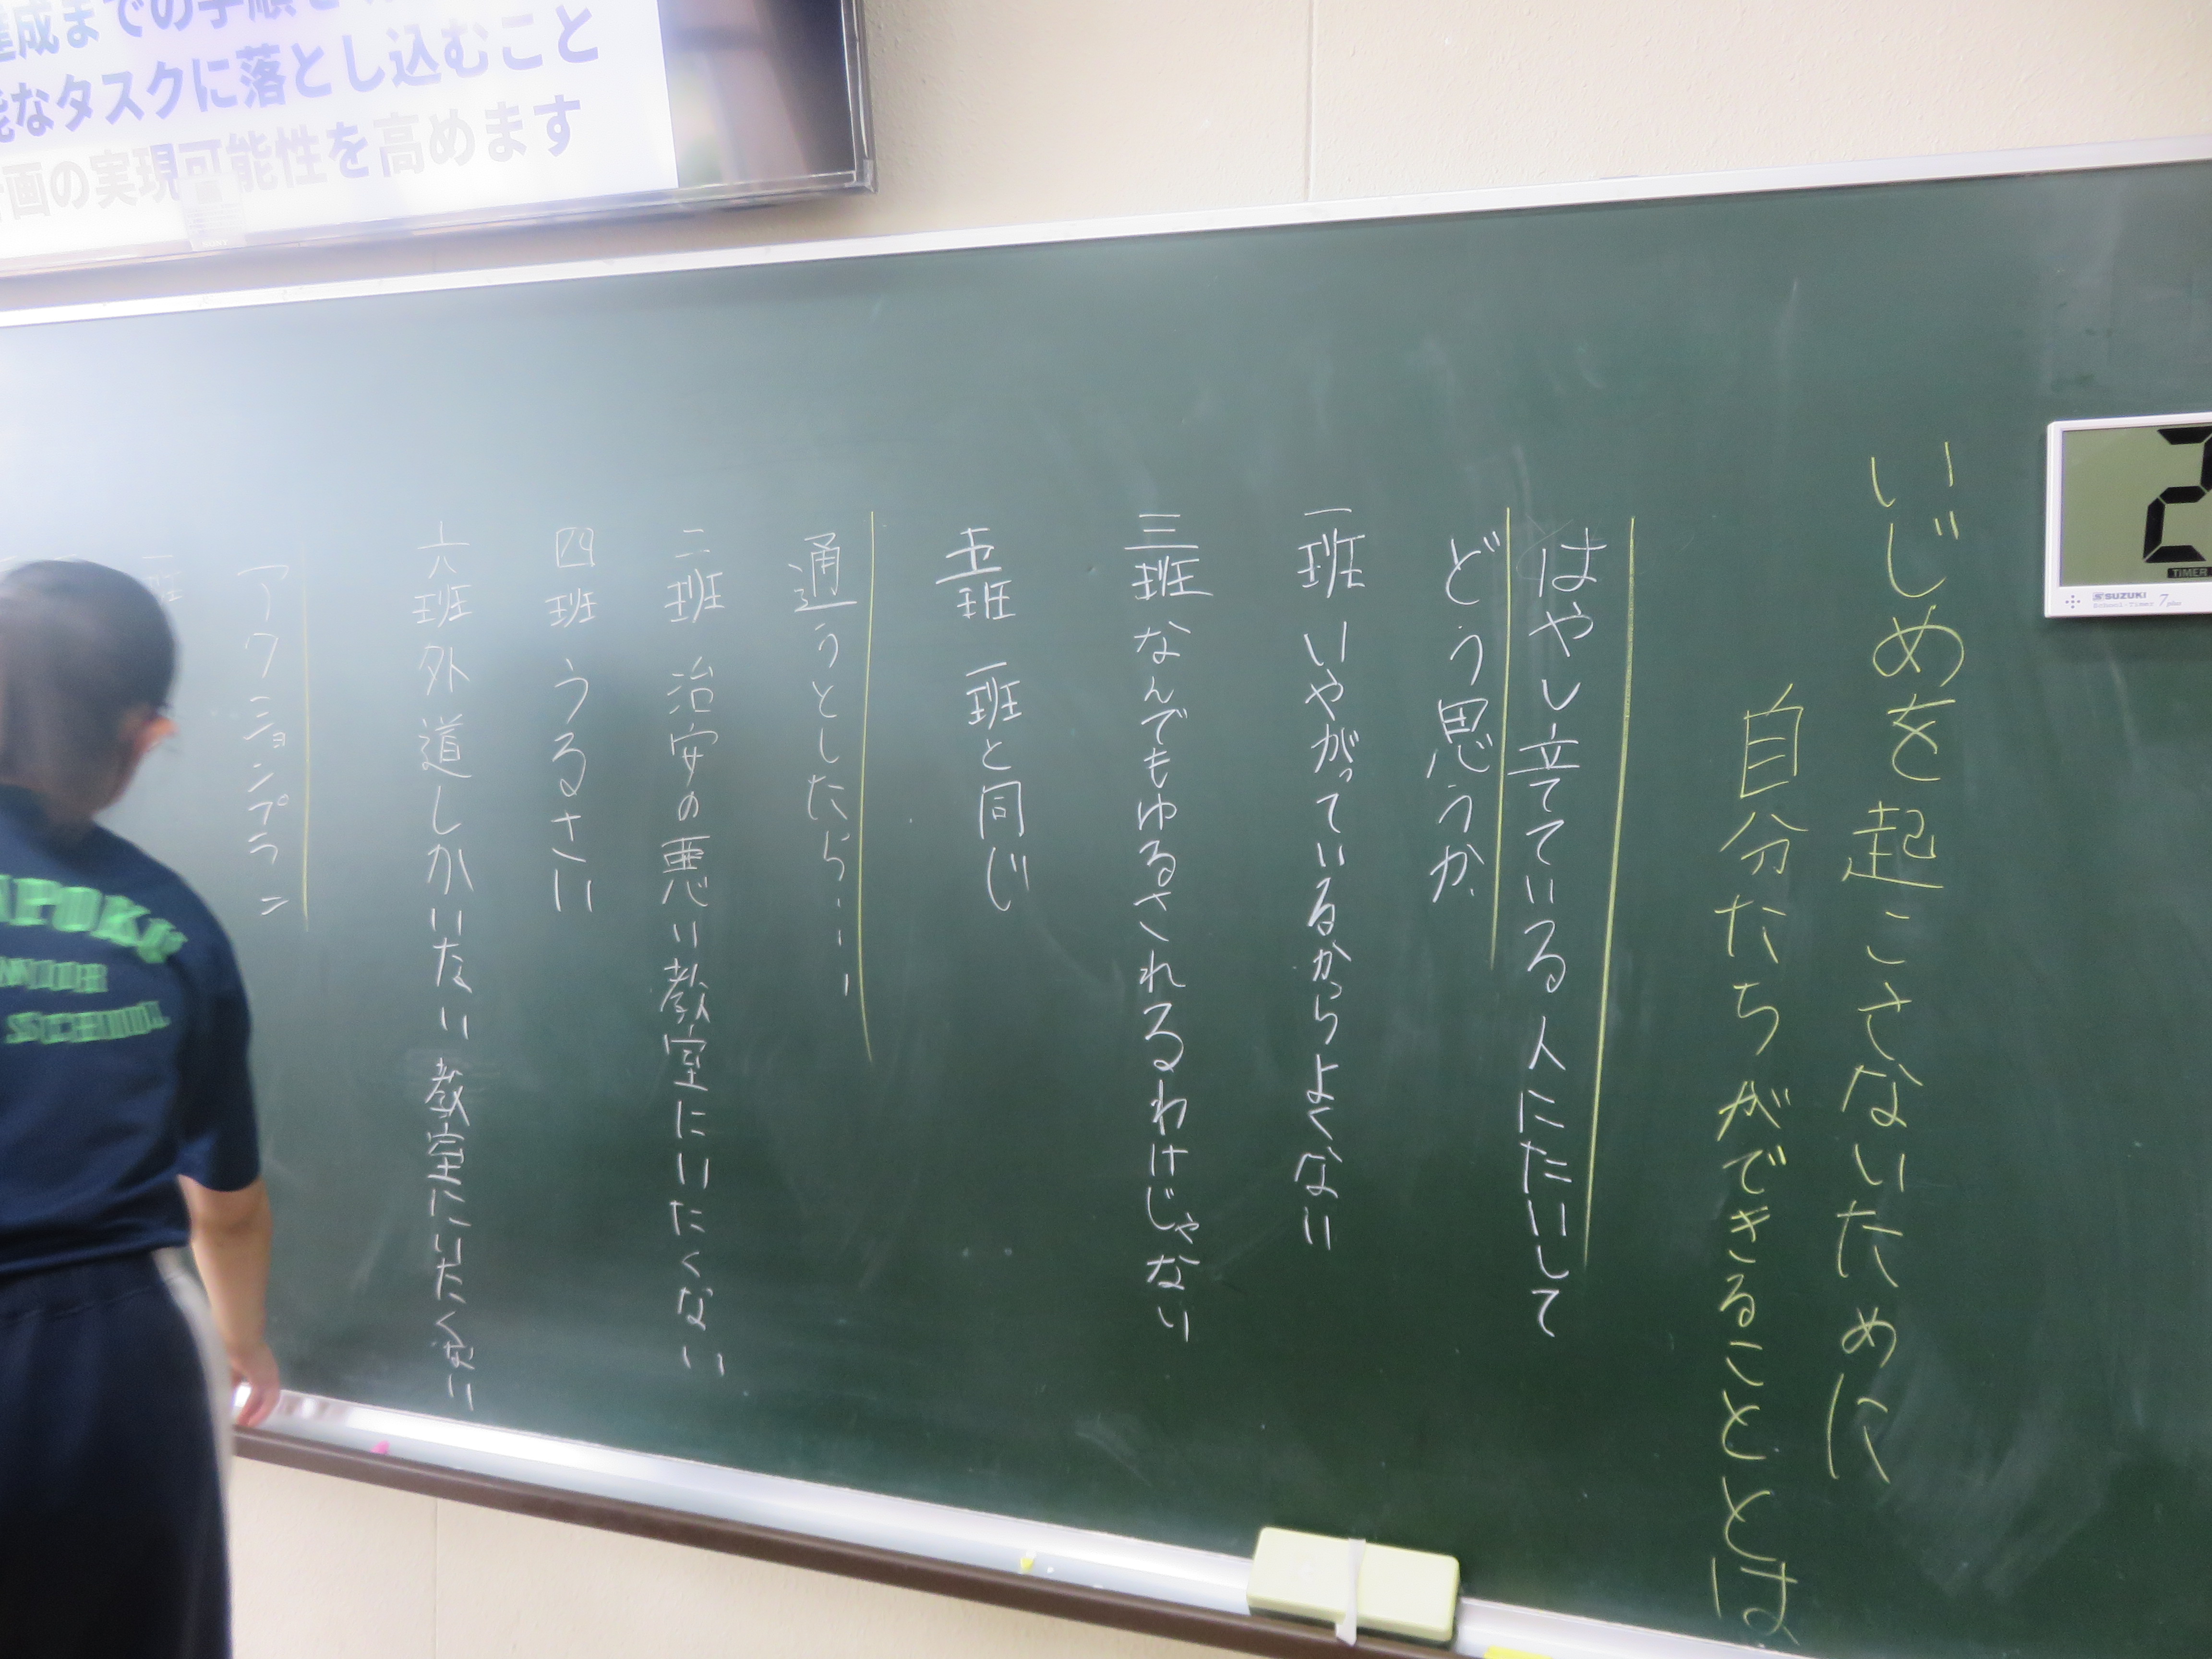 成までの手順を
なタスクに落とし込むこと
画の実現可能性を高めます
いじめを起こさないために
自分たちができることとは
はやし立てている人にたいして
どう思うか
一班 いやがっているからよくない
三班 なんでもゆるされるわけじゃない
五班 一班と同じ
通うとしたら……
二班 治安の悪い教室にいたくない
四班 うるさい
六班 外道しかいない教室にいたくない
アクションプラン
2
TIMER
SUZUKI
School Timer 7 plus
SCHOOL